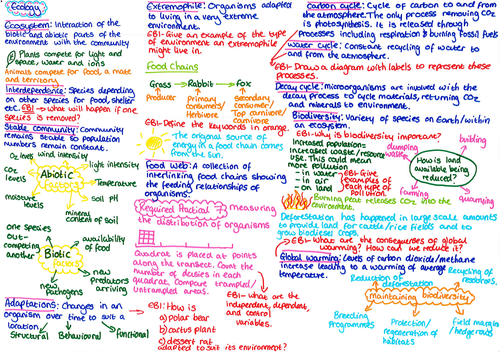 Ecology
Ecosystem: Interaction of the
biotic and abiotic parts of the
environment with the community
Plants compete for light and
space, water and ions
Animals compete for food, a mate
and territory.
Interdependence: Species depending
on other species for food, shelter
etc. EBI → What will happen if one
species is removed?
Stable community: Community
remains stable so population
numbers remain constant.
O₂ levels
wind intensity
light intensity
CO₂
levels
Abiotic
Factors
Temperature
moisture
levels
Soil pH
mineral
content of soil
one species
out-
competing
another
availability
of food
Biotic
Factors
new
pathogens
new
predators
arriving
Adaptations: Changes in an
organism over time to suit a
location.
Structural
Behavioural
Functional
Extremophile: Organisms adapted
to living in a very extreme
environment.
EBI- Give an example of the type
of environment an extremophile
might live in.
Food Chains
Grass → Rabbit → Fox
Producer
Primary
Consumer/
Herbivore
Secondary
Consumer/
Top carnivore/
carnivore
EBI- Define the keywords in orange.
The original source of
energy in a food chain
comes from the sun.
Food web: A collection of
interlinking food chains showing
the feeding relationships of
organisms.
Required Practical 7
measuring
the distribution of organisms
Quadrat is placed at points
along the transect. Count the
number of daisies in each
quadrat. Compare trampled/
untrampled areas.
EBI- How is
a) polar bear
b) cactus plant
c) dessert rat
adapted to suit its environment?
EBI- what are
the independent,
dependent,
and control
variables.
Carbon cycle: Cycle of carbon to and from
the atmosphere. The only process removing CO₂
is photosynthesis. It is released through
processes including respiration & burning fossil fuels
Water cycle: Constant recycling of water to
and from the atmosphere.
EBI- Draw a diagram with labels to represent these
processes.
Decay cycle: microorganisms are involved with the
decay process to cycle materials, returning CO₂
and minerals to environment.
Biodiversity: Variety of species on Earth/within
an ecosystem.
EBI- why is biodiversity important?
Increased population:
Increased waste/resource
use. This could mean
more pollution
- in water
- in air
- on land
EBI- Give
examples of
each type of
Pollution.
dumping
waste
building
How is land
available being
reduced?
farming
quarrying
Burning peat releases CO₂ into the
environment.
Deforestation has happened in large scale amounts
to provide land for cattle/rice fields and to
grow biodiesel crops.
EBI- What are the consequences of global
warming? How can we reduce it?
Global warming: Levels of carbon dioxide/methane
increase leading to a warming of average
temperature.
Reduction of
deforestation
Recycling of resources.
maintaining biodiversity
Breeding
Programmes
Protection/
regeneration of
habitats
Field margin
/hedgerows